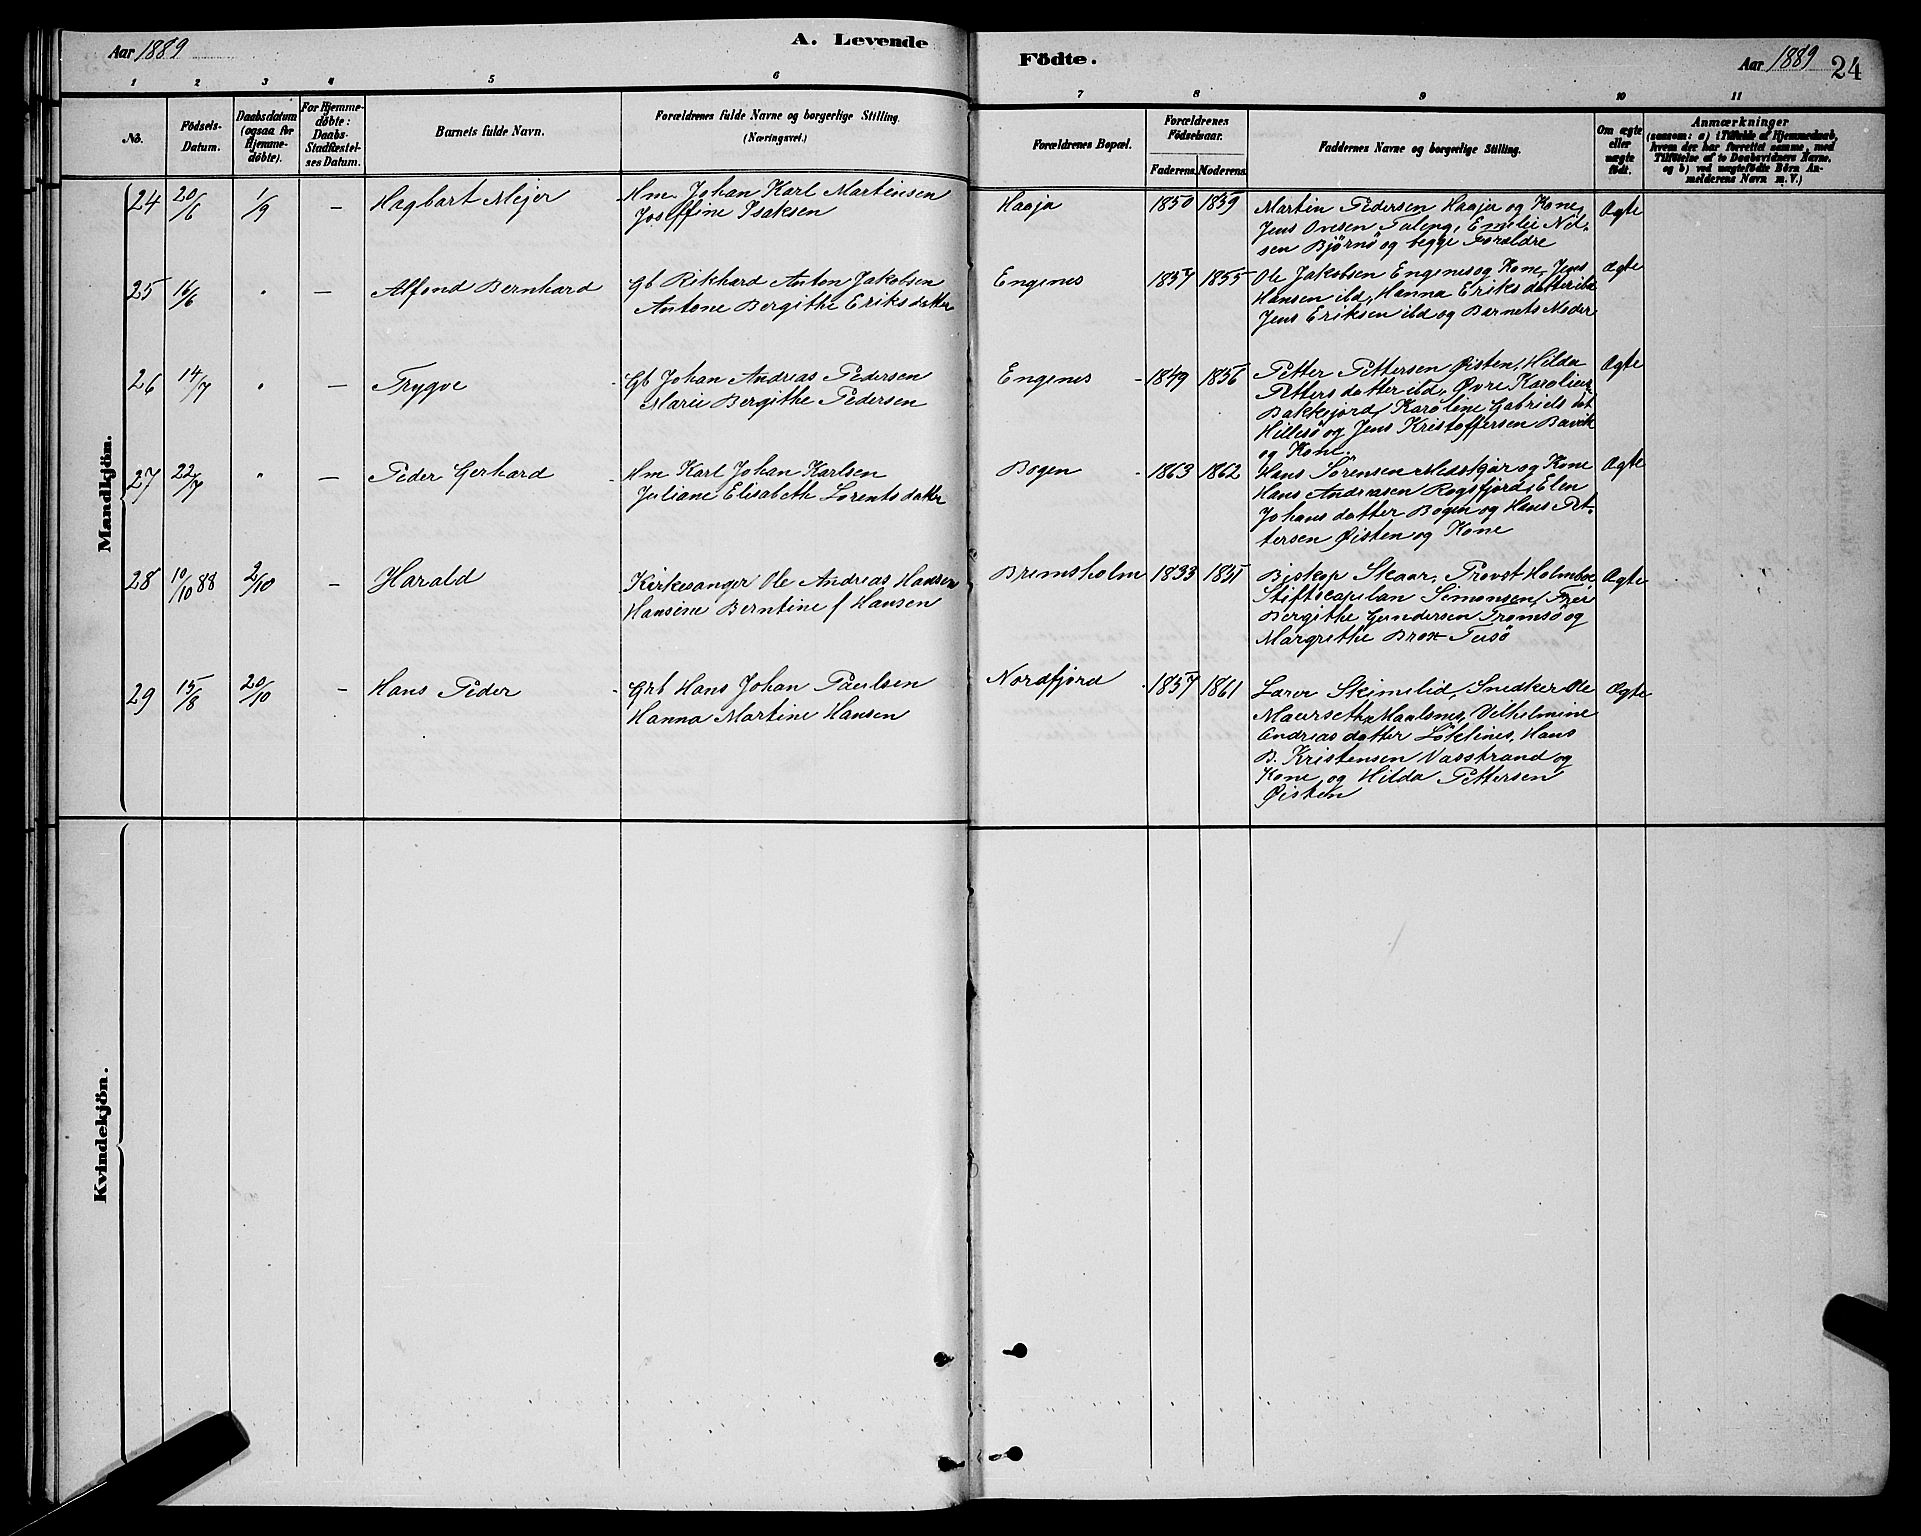 Aar 1889
A. Levende
Födte.
Aar 1889
24
1 2 3 4 5 6 7 8 9 10 11
No.
Födsels-
Datum.
Daabsdatum
(ogsaa for
Hjemme-
døbte).
For Hjemme-
døbte:
Daabs-
Stadfæstel-
ses Datum.
Barnets fulde Navn.
Forældrenes fulde Navne og borgerlige Stilling.
(Næringsvei.)
Forældrenes Bopæl.
Forældrenes
Födselsaar.
Faderens. Moderens.
Faddernes Navne og borgerlige Stilling.
Om ægte
eller
uægte
født.
Anmærkninger
(saasom: a) i Tilfælde af Hjemmedaab,
hvem der har forrettet samme, med
Tilföielse af to Daabsvidners Navne,
og b) ved uægtefødte Börn An-
melderens Navn m. V.)
Mandkjön.
24 20/6 1/9 – Hagbart Mejer
Hm Johan Karl Martinsen
Joseffine Isaksen
Haaja 1850 1859
Martin Pedersen Haaja og Kone,
Jens Ovesen Tuleng, Emilie Nil-
sen Björnö og begge Forældre
Ægte
25 16/6 " – Alfond Bernhard
Gb Rikhard Anton Jakobsen
Antone Bergithe Eriksdatter
Engenes 1857 1855
Ole Jakobsen Engenes og Kone, Jens
Hansen ibd, Hanna Eriksdatter ibd
Jens Eriksen ibd og Barnets Moder
Ægte
26 14/7 " – Trygve
Gb Johan Andreas Pedersen
Marie Bergithe Pedersen
Engenes 1849 1856
Petter Pettersen Øisten, Hilda
Pettersdatter ibd, Øvre Karoline
Bakkejord, Karoline Gabrielsdat
Hillesö og Jens Kristoffersen Bavik
og Kone.
Ægte
27 22/7 " – Peder Gerhard
Hm Karl Johan Karlsen
Juliane Elisabeth Lorentsdatter
Bogen 1863 1862
Hans Sörensen Medskjær og Kone
Hans Andreasen Rogsfjord, Elen
Johansdatter Bogen og Hans Pet-
tersen Øisten og Kone
Ægte
28 10/10 88 2/10 – Harald
Kirkesanger Ole Andreas Hansen
Hansine Berntine f Hansen
Bremsholm 1833 1851
Biskop Skaar, Provst Holmboe,
Stiftscapelan Simonsen, Frøk
Bergithe Gundersen Tromsö og
Margrethe Brox Tusö
Ægte
29 15/8 20/10 – Hans Peder
Grb Hans Johan Paulsen
Hanna Martine Hansen
Nordfjord 1857 1861
Lærer Skimelid, Snedker Ole
Maurseth Maalsnes, Vilhelmine
Andreasdatter Löklines, Hans
B. Kristensen Vasstrand og
Kone og Hilda Pettersen
Øisten
Ægte
Kvindekjön.